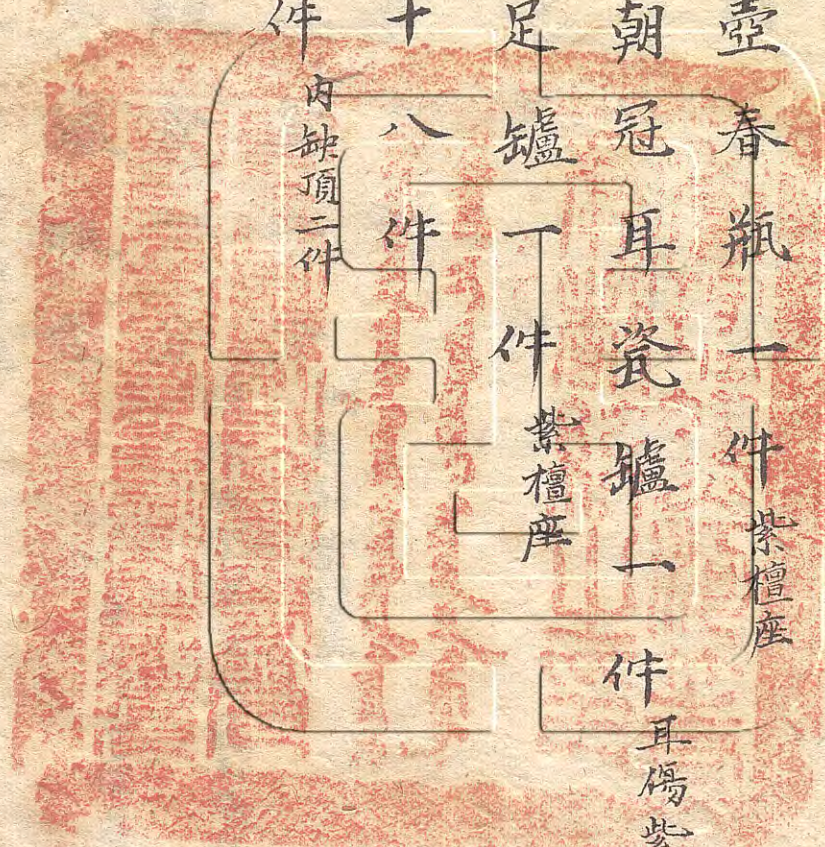 壺春瓶一件紫檀座
朝冠耳瓷鑪一件耳傷紫
足鑪一件紫檀座
十八件
件內缺頂二件